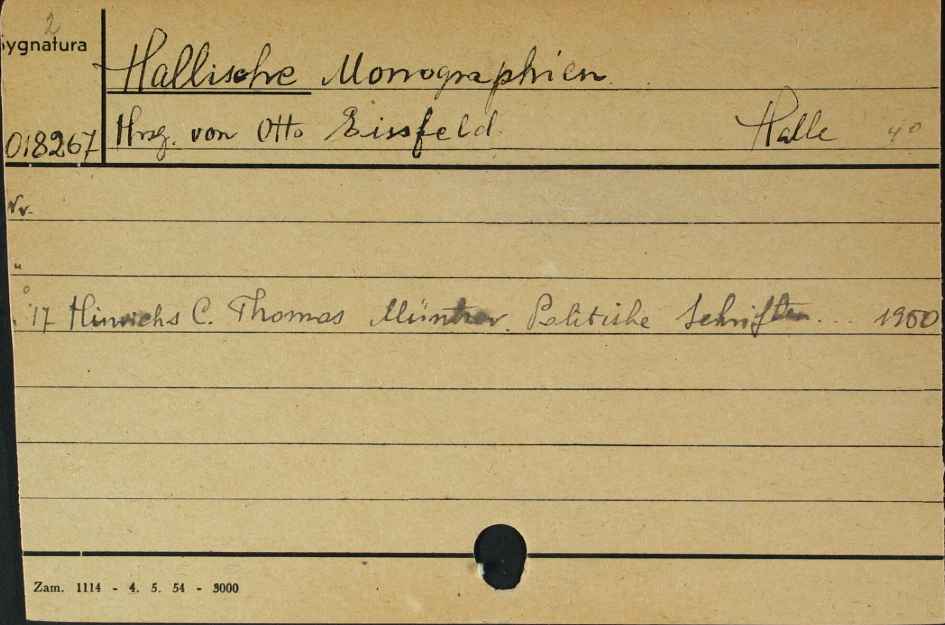 2
Sygnatura
Hallische Monographien.
018267
Hrsg. von Otto Eissfeld.
Halle 4°
Nr.
"
17 Hinrichs C. Thomas Müntzer. Politishe Schriften... 1950
Zam. 1114 - 4. 5. 54 - 3000